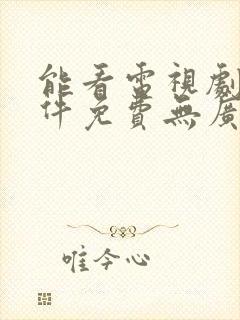 能看電視劇
件免費無廣
唯今心